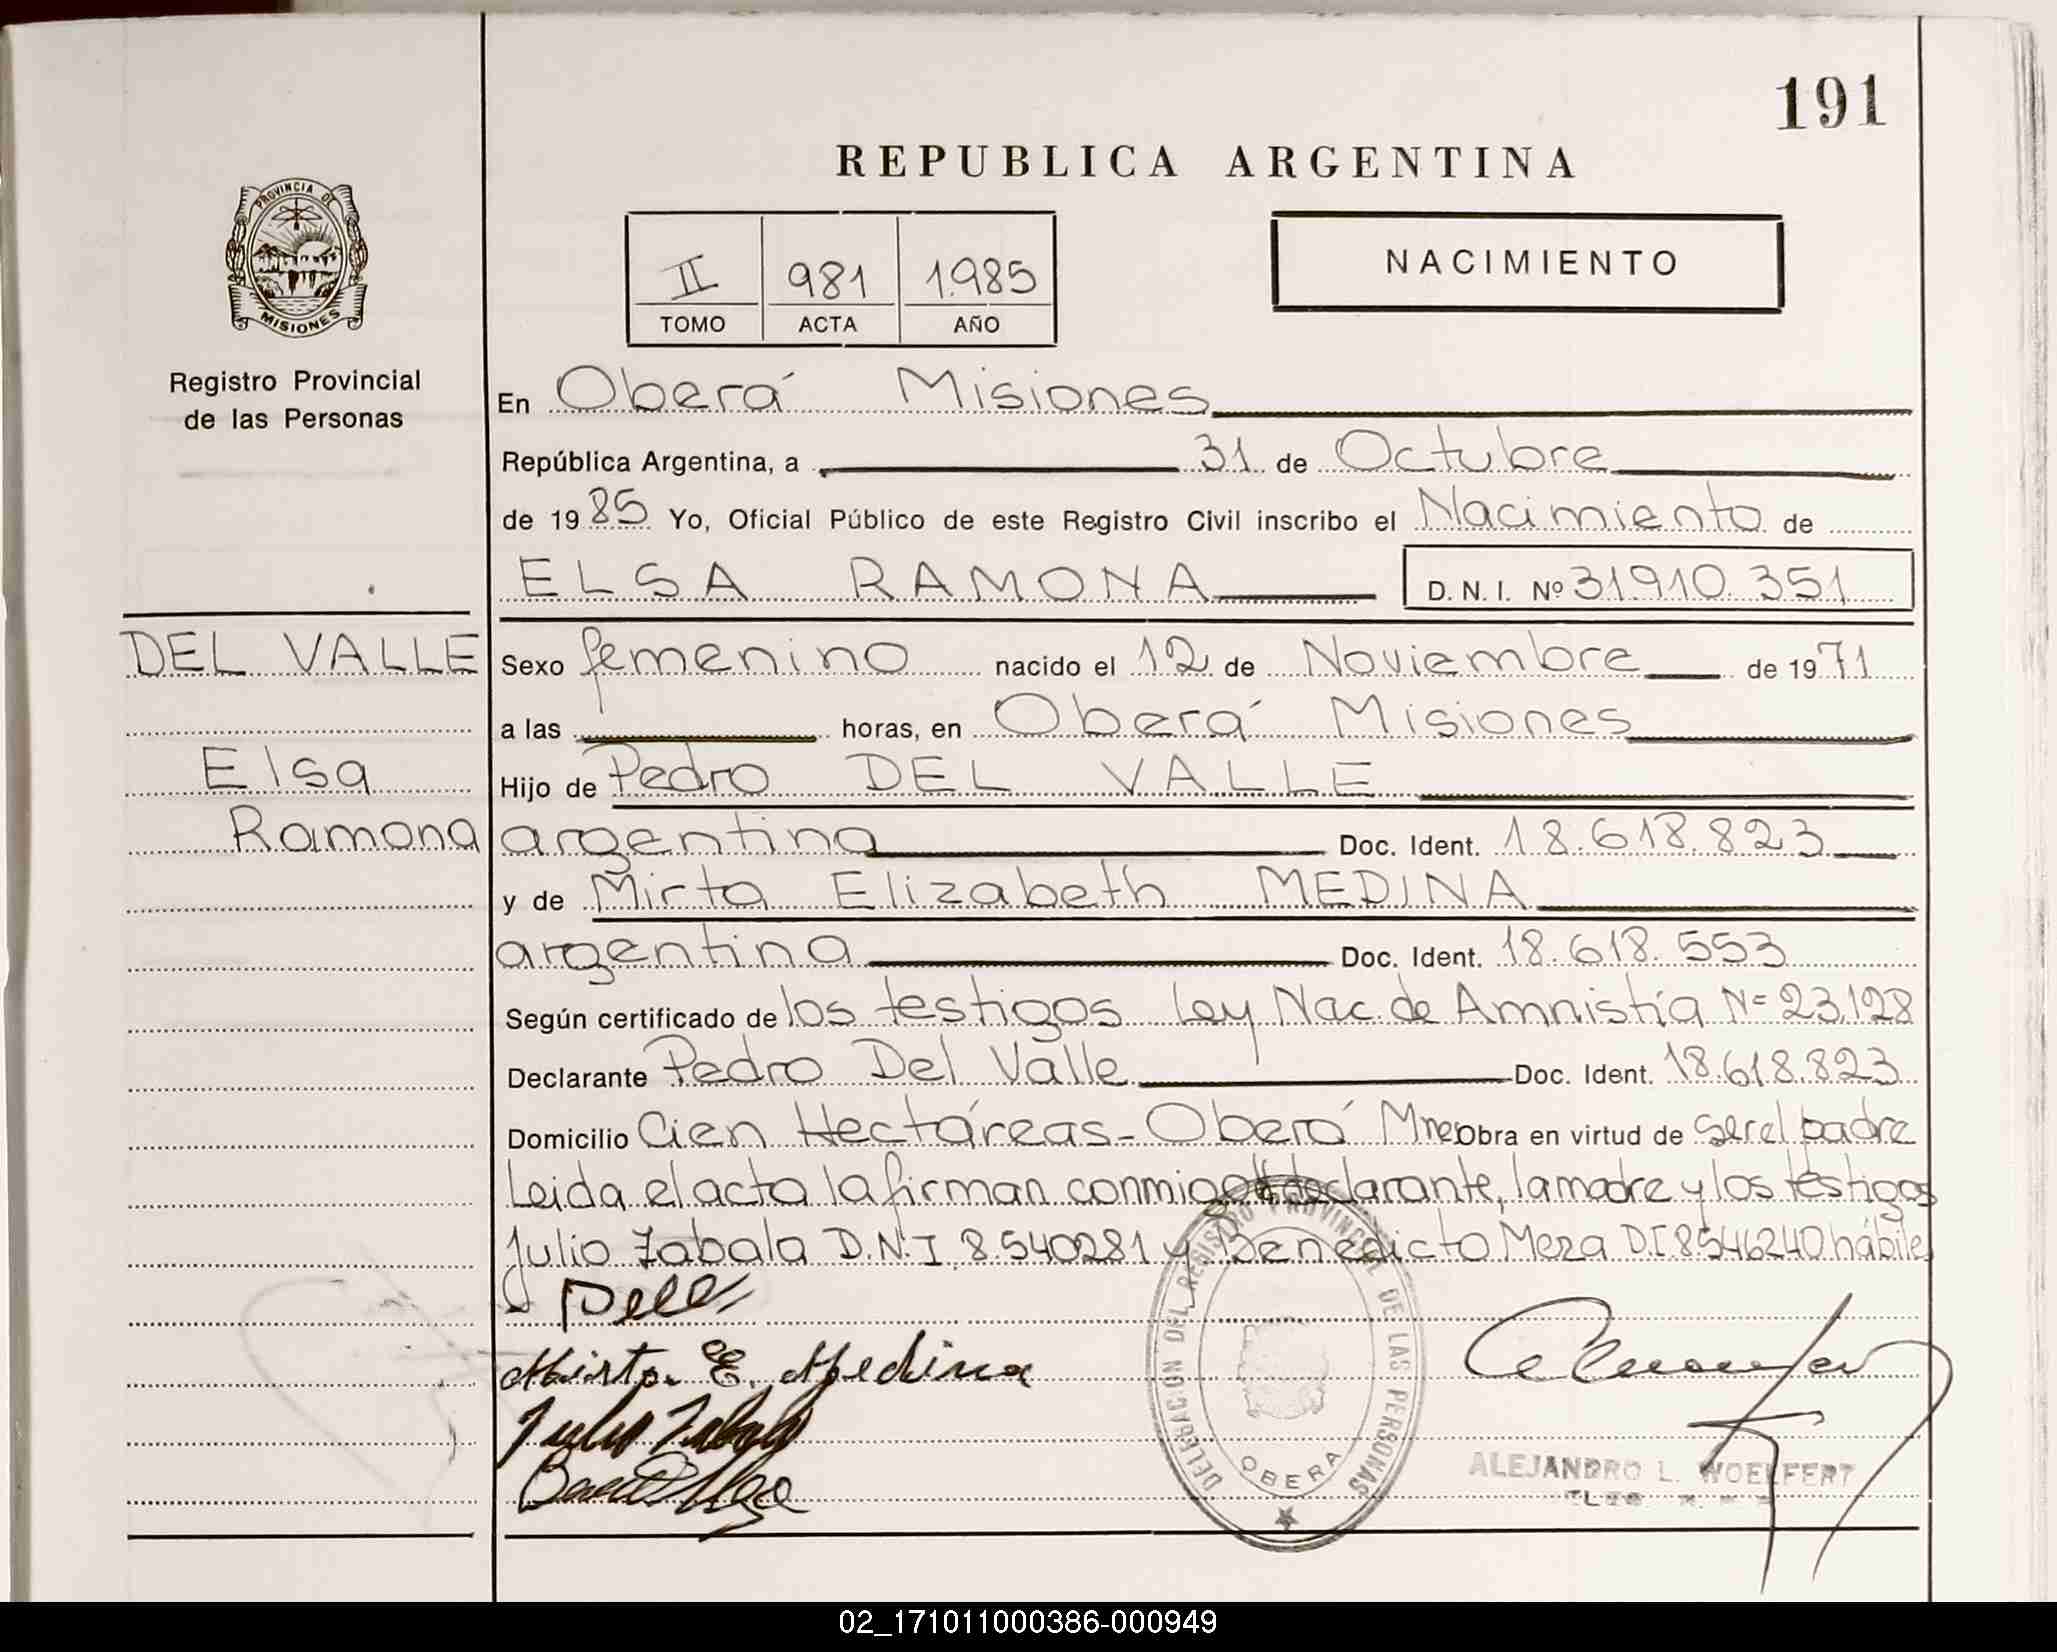 191
REPUBLICA ARGENTINA
PROVINCIA DE
MISIONES
Registro Provincial
de las Personas
II 981 1.985
TOMO ACTA AÑO
NACIMIENTO
En Oberá Misiones
República Argentina, a 31 de Octubre
de 1985 Yo, Oficial Público de este Registro Civil inscribo el Nacimiento de
ELSA RAMONA D. N. I. Nº 31.910.351
DEL VALLE
Elsa
Ramona
Sexo femenino nacido el 12 de Noviembre de 1971
a las horas, en Oberá Misiones
Hijo de Pedro DEL VALLE
argentina Doc. Ident. 18.618.823
y de Mirta Elizabeth MEDINA
argentina Doc. Ident. 18.618.553
Según certificado de los testigos Ley Nac. de Amnistía N= 23.128
Declarante Pedro Del Valle Doc. Ident. 18.618.823
Domicilio Cien Hectáreas - Oberá Mnes Obra en virtud de ser el padre
Leida el acta la firman conmigo el declarante, la madre y los testigos
Julio Zabala D.N.I 8.540281 y Benedicto Meza D.I 8546240 hábiles
Mirta E. Medina
Julio Zabala
DELEGACION DEL REGISTRO PROVINCIAL DE LAS PERSONAS
OBERA
ALEJANDRO L. WOELFERT
02_171011000386-000949